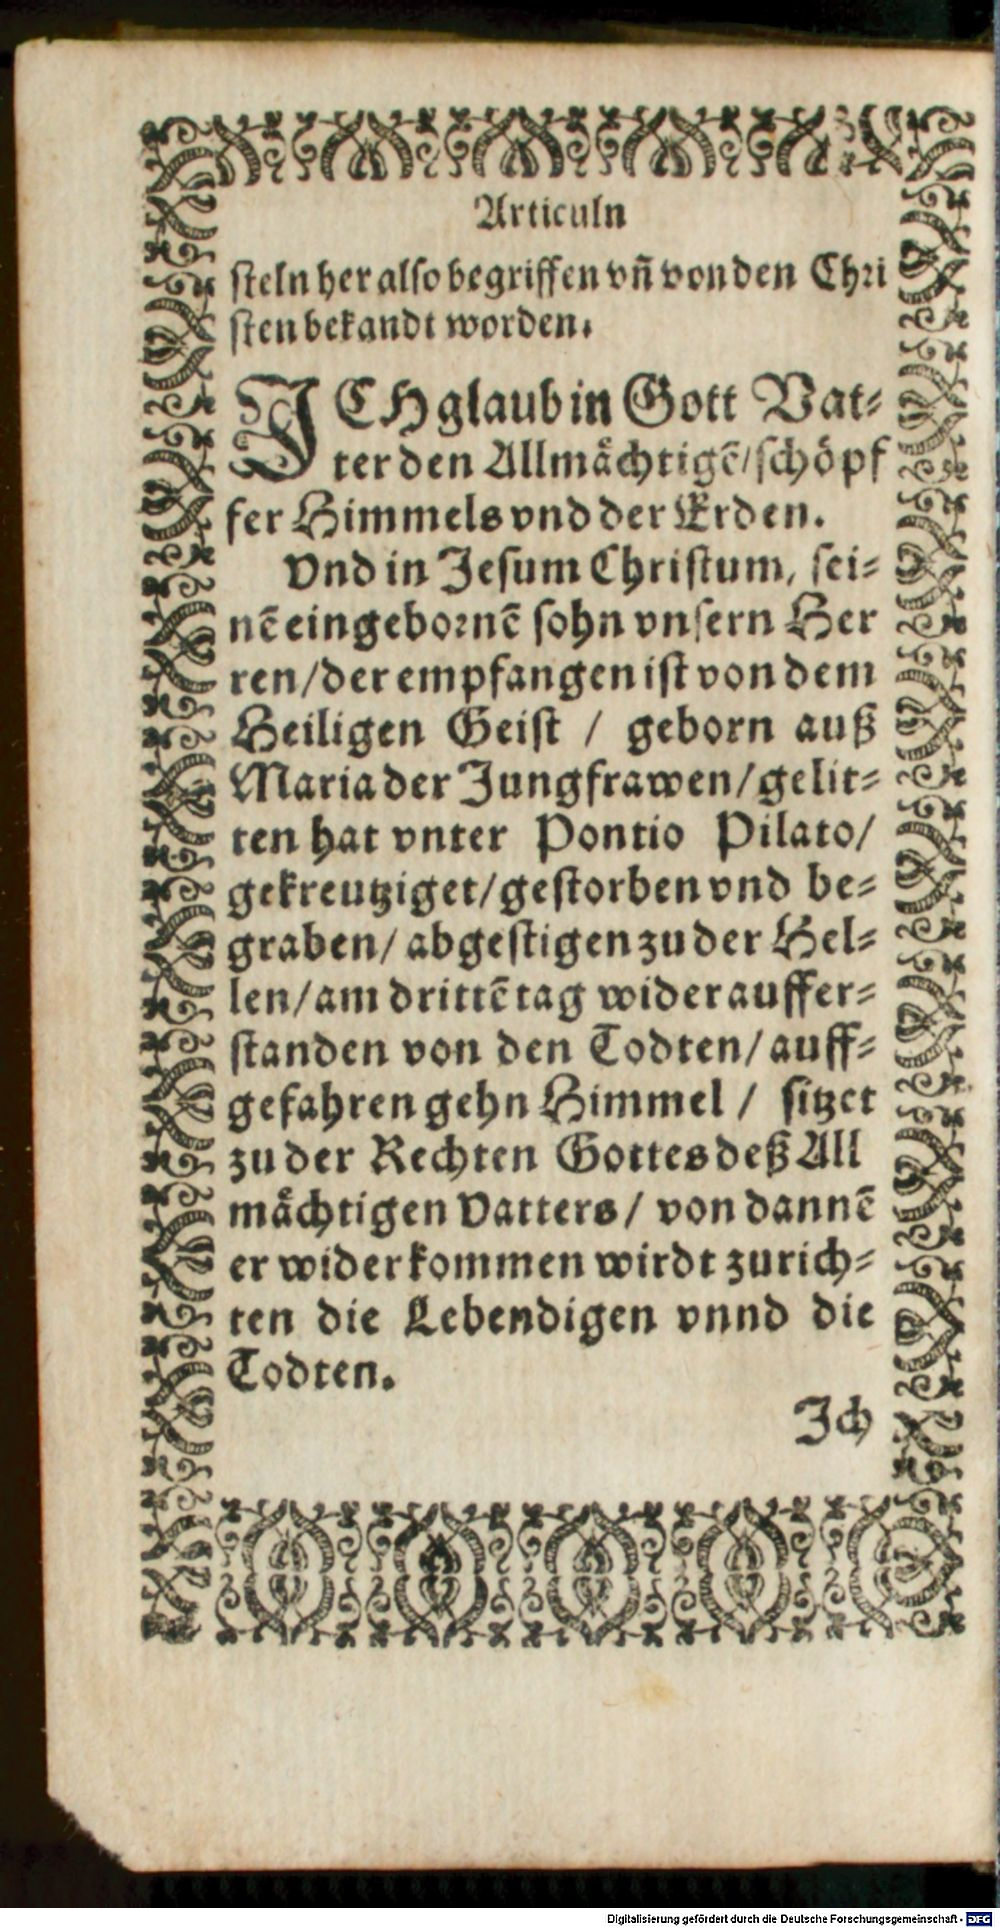 Articuln
steln her also begriffen vñ von den Chri
sten bekandt worden.
ICH glaub in Gott Vat-
ter den Allmächtigē/schöpf
fer Himmels vnd der Erden.
Vnd in Jesum Christum, sei-
nē eingebornē sohn vnsern Her
ren/der empfangen ist von dem
Heiligen Geist / geborn auß
Maria der Jungfrawen/gelit-
ten hat vnter Pontio Pilato/
gekreutziget/gestorben vnd be-
graben/ abgestigen zu der Hel-
len/am drittē tag wider auffer-
standen von den Todten/auff-
gefahren gehn Himmel / sitzet
zu der Rechten Gottes deß All
mächtigen Vatters/ von dannē
er wider kommen wirdt zurich-
ten die Lebendigen vnnd die
Todten.
Ich
Digitalisierung gefördert durch die Deutsche Forschungsgemeinschaft - DFG